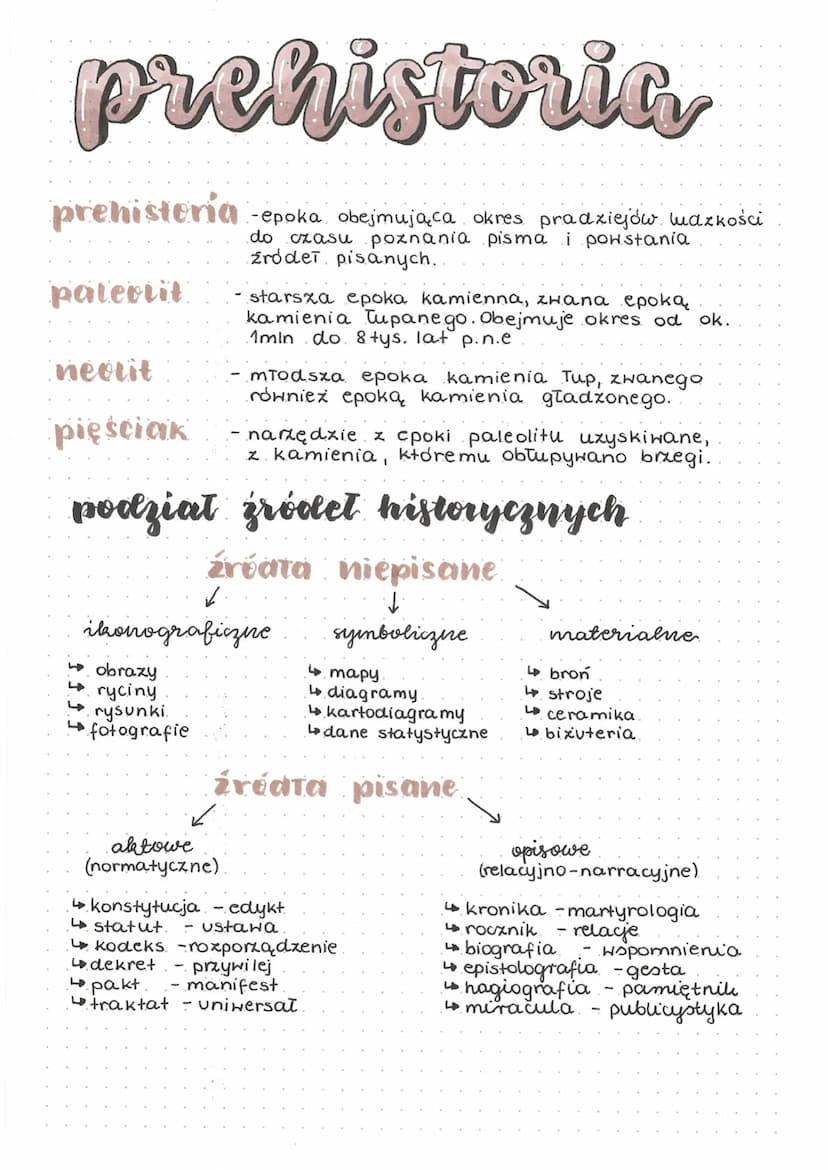 prehistoria
prehistoria - epoka obejmująca okres pradziejów ludzkości
do czasu poznania pisma i powstania
źródeł pisanych.
paleolit - starsza epoka kamienna, zwana epoką
kamienia łupanego. Obejmuje okres od ok.
1mln do 8 tys. lat p.n.e
neolit - młodsza epoka kamienia łup, zwanego
również epoką kamienia gładzonego.
pięściak - narzędzie z epoki paleolitu uzyskiwane,
z kamienia, któremu obłupywano brzegi.
podział źródeł historycznych
źródła niepisane
ikonograficzne symboliczne materialne
↳ obrazy ↳ mapy ↳ broń
↳ ryciny ↳ diagramy ↳ stroje
↳ rysunki ↳ kartodiagramy ↳ ceramika
↳ fotografie ↳ dane statystyczne ↳ biżuteria
źródła pisane
aktowe opisowe
(normatyczne) (relacyjno-narracyjne)
↳ konstytucja - edykt ↳ kronika - martyrologia
↳ statut - ustawa ↳ rocznik - relacje
↳ kodeks - rozporządzenie ↳ biografia - wspomnienia
↳ dekret - przywilej ↳ epistolografia - gesta
↳ pakt - manifest ↳ hagiografia - pamiętnik
↳ traktat - uniwersał ↳ miracula - publicystyka